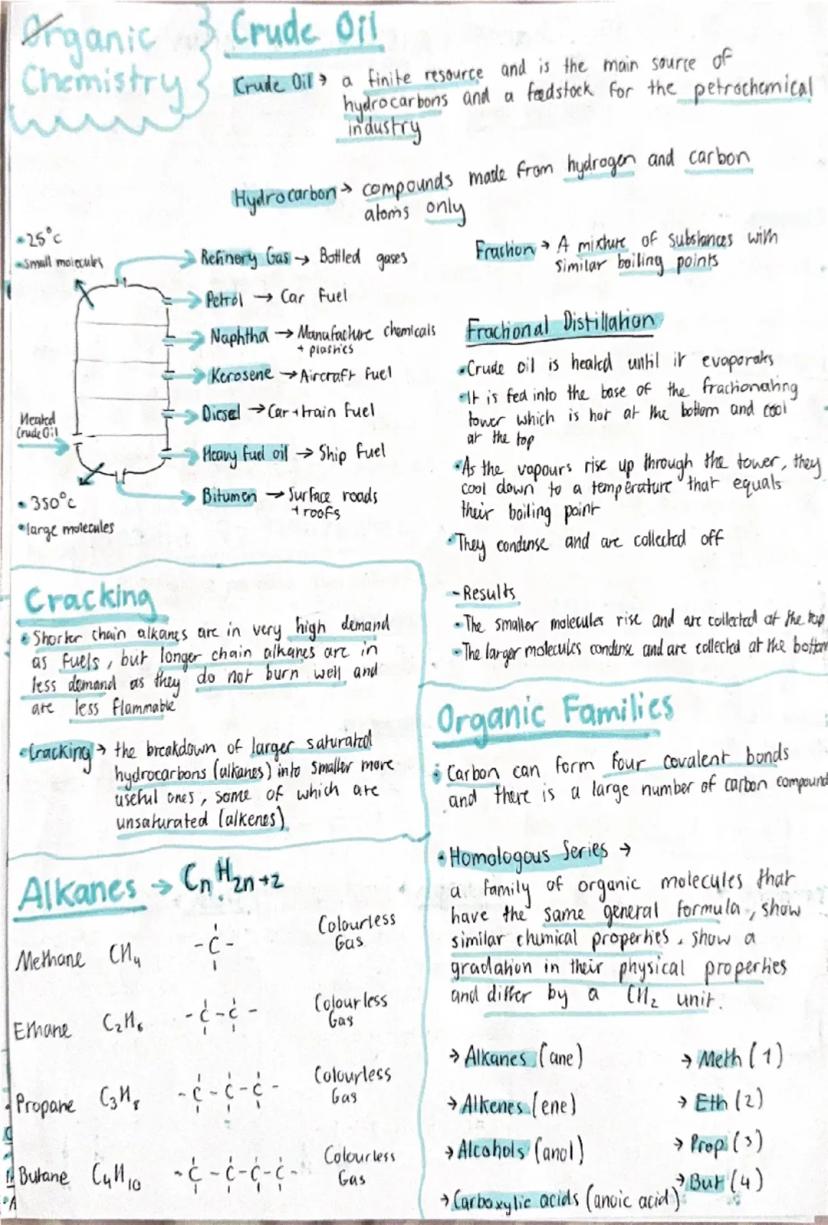 Organic
Chemistry
Crude Oil
Crude Oil → a finite resource and is the main source of
hydrocarbons and a feedstock for the petrochemical
industry
Hydrocarbon → compounds made from hydrogen and carbon
atoms only
• 25°c
• small molecules
Refinery Gas → Bottled gases
Petrol → Car Fuel
Naphtha → Manufacture chemicals
+ plastics
Kerosene → Aircraft Fuel
Diesel → Car + train Fuel
Heated
Crude Oil
Heavy fuel oil → Ship Fuel
Bitumen → Surface roads
+ roofs
• 350°c
• large molecules
Fraction → A mixture of substances with
similar boiling points
Fractional Distillation
• Crude oil is heated until it evaporates
• It is fed into the base of the fractionating
tower which is hot at the bottom and cool
at the top
• As the vapours rise up through the tower, they
cool down to a temperature that equals
their boiling point
• They condense and are collected off
- Results
• The smaller molecules rise and are collected at the top
• The larger molecules condense and are collected at the bottom
Cracking
• Shorter chain alkanes are in very high demand
as fuels, but longer chain alkanes are in
less demand as they do not burn well and
are less flammable
• Cracking → the breakdown of larger saturated
hydrocarbons (alkanes) into smaller more
useful ones, some of which are
unsaturated (alkenes)
Organic Families
• Carbon can form four covalent bonds
and there is a large number of carbon compound
• Homologous Series →
a family of organic molecules that
have the same general formula, show
similar chemical properties, show a
gradation in their physical properties
and differ by a CH₂ unit.
→ Alkanes (ane)
→ Alkenes (ene)
→ Alcohols (anol)
→ Carboxylic acids (anoic acid)
→ Meth (1)
→ Eth (2)
→ Prop (3)
→ But (4)
Alkanes → CnH2n+2
Methane CH₄ -C- Colourless
Gas
Ethane C₂H₆ -C-C- Colourless
Gas
Propane C₃H₈ -C-C-C- Colourless
Gas
Butane C₄H₁₀ -C-C-C-C- Colourless
Gas